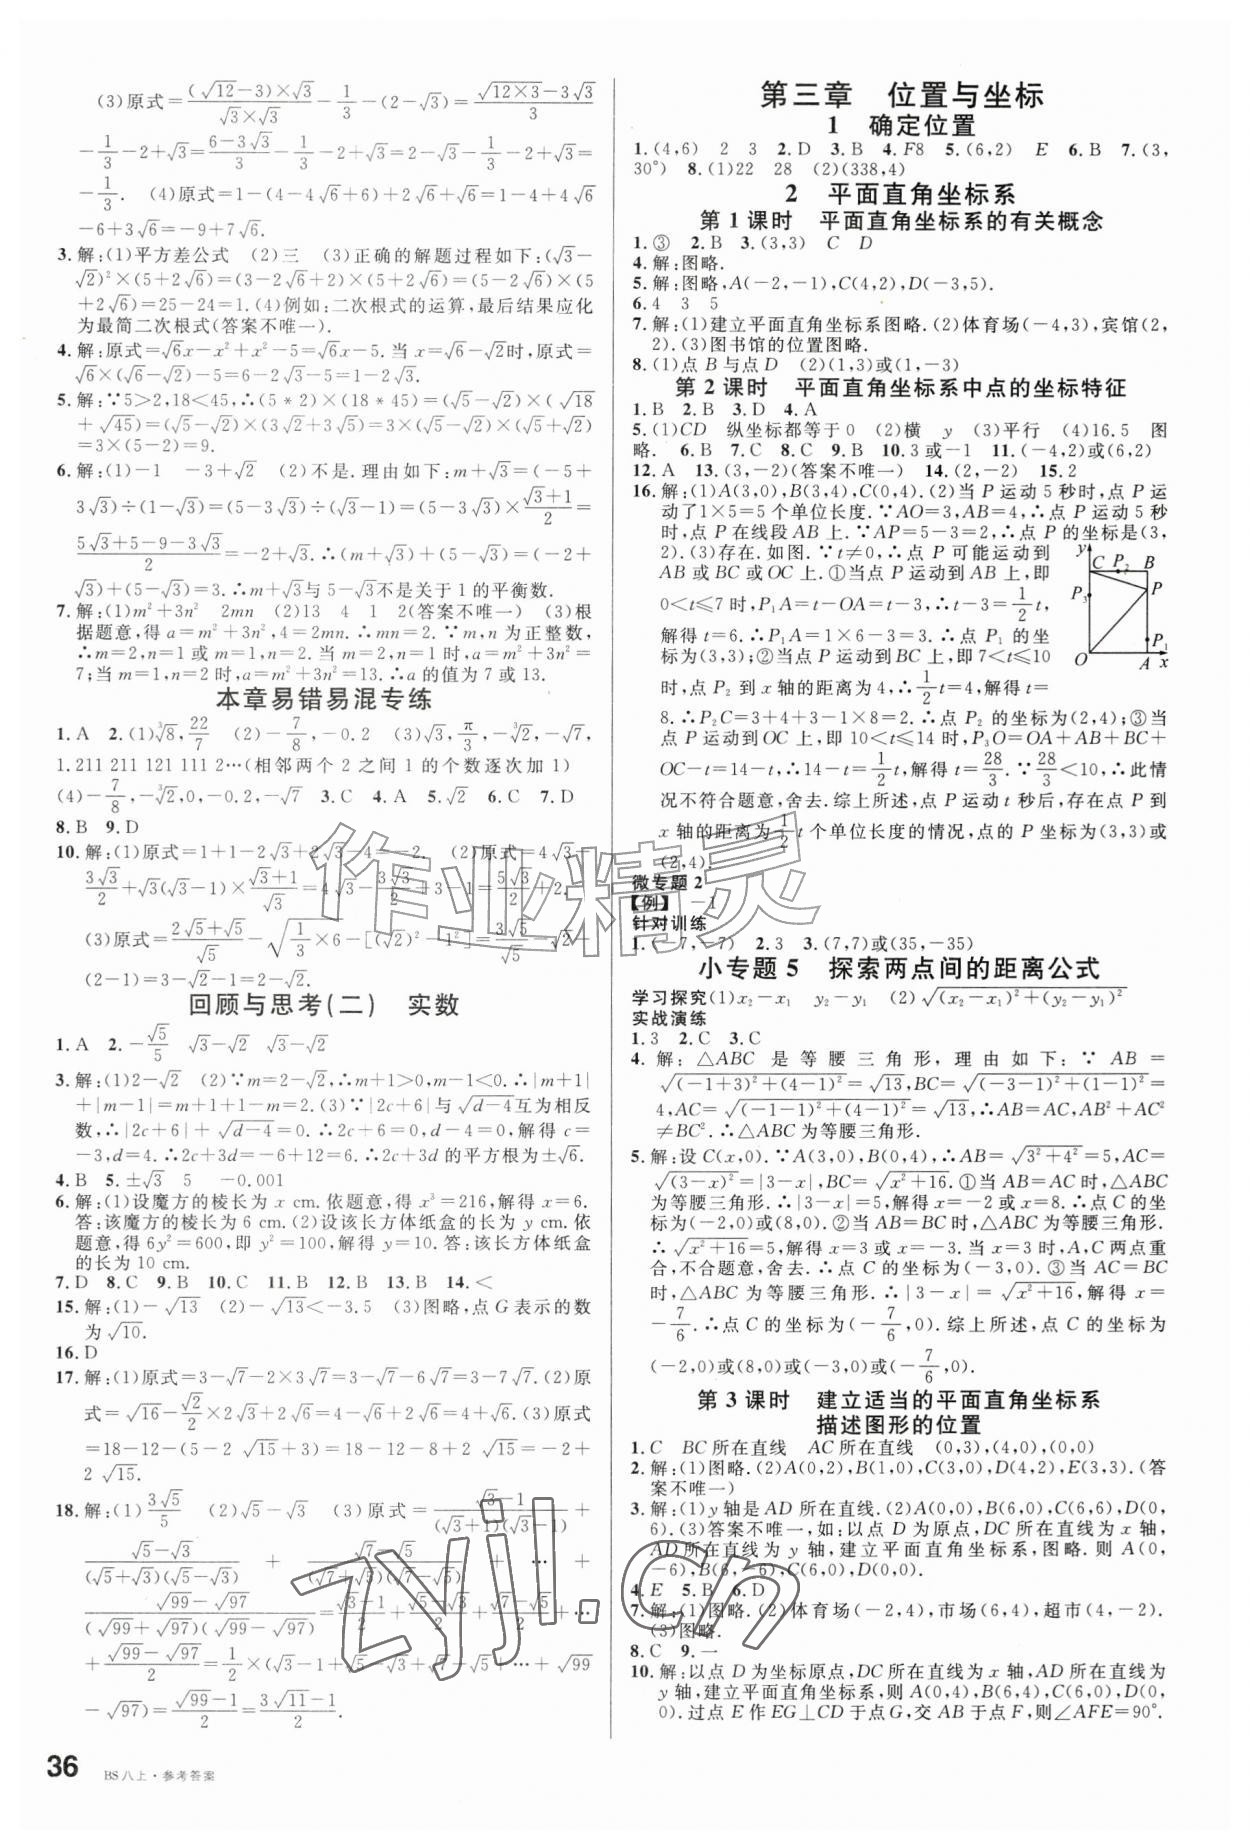 (3)原式=(√12-3)×√3/√3×√3-1/3-(2-√3)=√12×3-3√3/3
-1/3-2+√3=6-3√3/3-1/3-2+√3=2-√3-1/3-2+√3=
-1/3. (4)原式=1-(4-4√6+6)+2√6+√6=1-4+4√6
-6+3√6=-9+7√6.
3.解:(1)平方差公式 (2)三 (3)正确的解题过程如下:(√3-
√2)²×(5+2√6)=(3-2√6+2)×(5+2√6)=(5-2√6)×(5
+2√6)=25-24=1.(4)例如:二次根式的运算,最后结果应化
为最简二次根式(答案不唯一).
4.解:原式=√6x-x²+x²-5=√6x-5.当x=√6-√2时,原式=
√6×(√6-√2)-5=6-2√3-5=1-2√3.
5.解:∵5>2,18<45,∴(5*2)×(18*45)=(√5-√2)×(√18
+√45)=(√5-√2)×(3√2+3√5)=3×(√5-√2)×(√5+√2)
=3×(5-2)=9.
6.解:(1)-1 -3+√2 (2)不是.理由如下:m+√3=(-5+
3√3)÷(1-√3)=(5-3√3)÷(√3-1)=(5-3√3)×√3+1/2=
5√3+5-9-3√3/2=-2+√3.∴(m+√3)+(5-√3)=(-2+
√3)+(5-√3)=3.∴m+√3与5-√3不是关于1的平衡数.
7.解:(1)m²+3n² 2mn (2)13 4 1 2(答案不唯一) (3)根
据题意,得a=m²+3n²,4=2mn.∴mn=2.∵m,n为正整数,
∴m=2,n=1或m=1,n=2.当m=2,n=1时,a=m²+3n²=
7;当m=1,n=2时,a=m²+3n²=13.∴a的值为7或13.
本章易错易混专练
1.A 2.(1)³√8,22/7 (2)-7/8,-0.2 (3)√3,π/3,-³√2,-√7,
1.211 211 121 111 2…(相邻两个2之间1的个数逐次加1)
(4)-7/8,-³√2,0,-0.2,-√7 3.C 4.A 5.√2 6.C 7.D
8.B 9.D
10.解:(1)原式=1+1-2√3+2√3-4=-2. (2)原式=4√3-
3√3/2+√3(√3-1)×√3+1/√3=5√3/2+3-1=5√3/2+2.
(3)原式=2√5+√5/√5-√1/3×6-[(√2)²-1²]=3√5/√5-√2+
(2-1)=3-√2+1=4-√2.
回顾与思考(二) 实数
1.A 2.-√5/5 √3-√2 √3-√2
3.解:(1)2-√2 (2)∵m=2-√2,∴m+1>0,m-1<0.∴|m+1|
+|m-1|=m+1+1-m=2.(3)∵|2c+6|与√d-4互为相反
数,∴|2c+6|+√d-4=0.∴2c+6=0,d-4=0,解得c=
-3,d=4.∴2c+3d=-6+12=6.∴2c+3d的平方根为±√6.
4.B 5.±√3 5 -0.001
6.解:(1)设魔方的棱长为x cm.依题意,得x³=216,解得x=6.
答:该魔方的棱长为6 cm.(2)设该长方体纸盒的长为y cm.依
题意,得6y²=600,即y²=100,解得y=10.答:该长方体纸盒
的长为10 cm.
7.D 8.C 9.B 10.C 11.B 12.B 13.B 14.<
15.解:(1)-√13 (2)-√13<-3.5 (3)图略,点G表示的数
为√10.
16.D
17.解:(1)原式=3-√7-2×3√7=3-√7-6√7=3-7√7.(2)原
式=√16-√2/2×2√2=4-2=2.(3)原式
=18-12-(5-2√15+3)=18-12-8+2√15=-2+
2√15.
18.解:(1)3√5/5 (2)√5-√3 (3)原式=√3-1/(√3+1)(√3-1)+
√5-√3/(√5+√3)(√5-√3)+√7-√5/(√7+√5)(√7-√5)+…+
√99-√97/(√99+√97)(√99-√97)=√3-1/2+√5-√3/2+√7-√5/2+…
+√99-√97/2=1/2×(√3-1+√5-√3+√7-√5+…+√99
-√97)=√99-1/2=3√11-1/2.
36 BS八上·参考答案
第三章 位置与坐标
1 确定位置
1.(4,6) 2 3 2.D 3.B 4.F8 5.(6,2) E 6.B 7.(3,
30°) 8.(1)22 28 (2)(338,4)
2 平面直角坐标系
第1课时 平面直角坐标系的有关概念
1.③ 2.B 3.(3,3) C D
4.解:图略.
5.解:图略,A(-2,-1),C(4,2),D(-3,5).
6.4 3 5
7.解:(1)建立平面直角坐标系图略.(2)体育场(-4,3),宾馆(2,
2).(3)图书馆的位置图略.
8.(1)点B与点D (2)(1,3)或(1,-3)
第2课时 平面直角坐标系中点的坐标特征
1.B 2.B 3.D 4.A
5.(1)CD 纵坐标都等于0 (2)横 y (3)平行 (4)16.5 图
略. 6.B 7.C 8.C 9.C 10.3或-1 11.(-4,2)或(6,2)
12.A 13.(3,-2)(答案不唯一) 14.(2,-2) 15.2
16.解:(1)A(3,0),B(3,4),C(0,4).(2)当P运动5秒时,点P运
动了1×5=5个单位长度.∵AO=3,AB=4,∴点P运动5秒
时,点P在线段AB上.∵AP=5-3=2,∴点P的坐标是(3,
2).(3)存在.如图.∵t≠0,∴点P可能运动到
AB或BC或OC上.①当点P运动到AB上时,即
0<t≤7时,P₁A=t-OA=t-3,∴t-3=1/2t,
解得t=6.∴P₁A=1×6-3=3.∴点P₁的坐
标为(3,3);②当点P运动到BC上时,即7<t≤10
时,点P₂到x轴的距离为4,∴1/2t=4,解得t=
8.∴P₂C=3+4+3-1×8=2.∴点P₂的坐标为(2,4);③当
点P运动到OC上时,即10<t≤14时,P₃O=OA+AB+BC+
OC-t=14-t,∴14-t=1/2t,解得t=28/3.∵28/3<10,∴此情
况不符合题意,舍去.综上所述,点P运动t秒后,存在点P到
x轴的距离为1/2t个单位长度的情况,点的P坐标为(3,3)或
(2,4).
y C P₂ B
P
P₃
P₁
O A x
微专题2
【例】 -1
针对训练
1.(-7,-7) 2.3 3.(7,7)或(35,-35)
小专题5 探索两点间的距离公式
学习探究(1)x₂-x₁ y₂-y₁ (2)√(x₂-x₁)²+(y₂-y₁)²
实战演练
1.3 2.C 3.C
4.解:△ABC是等腰三角形,理由如下:∵AB=
√(-1+3)²+(4-1)²=√13,BC=√(-3-1)²+(1-1)²=
4,AC=√(-1-1)²+(4-1)²=√13,∴AB=AC,AB²+AC²
≠BC².∴△ABC为等腰三角形.
5.解:设C(x,0).∵A(3,0),B(0,4),∴AB=√3²+4²=5.
AC=√(3-x)²=|3-x|,BC=√x²+16.①当AB=AC时,△ABC
为等腰三角形.∴|3-x|=5,解得x=-2或x=8.∴点C的坐
标为(-2,0)或(8,0).②当AB=BC时,△ABC为等腰三角形.
∴√x²+16=5,解得x=3或x=-3.当x=3时,A,C两点重
合,不合题意,舍去.∴点C的坐标为(-3,0).③当AC=BC
时,△ABC为等腰三角形.∴|3-x|=√x²+16,解得x=
-7/6.∴点C的坐标为(-7/6,0).综上所述,点C的坐标为
(-2,0)或(8,0)或(-3,0)或(-7/6,0).
第3课时 建立适当的平面直角坐标系
描述图形的位置
1.C BC所在直线 AC所在直线 (0,3),(4,0),(0,0)
2.解:(1)图略.(2)A(0,2),B(1,0),C(3,0),D(4,2),E(3,3).(答
案不唯一)
3.解:(1)y轴是AD所在直线.(2)A(0,0),B(6,0),C(6,6),D(0,
6).(3)答案不唯一,如:以点D为原点,DC所在直线为x轴,
AD所在直线为y轴,建立平面直角坐标系,图略.则A(0,
-6),B(6,-6),C(6,0),D(0,0).
4.E 5.B 6.D
7.解:(1)图略.(2)体育场(-2,4),市场(6,4),超市(4,-2).
(3)图略.
8.C 9.一
10.解:以点D为坐标原点,DC所在直线为x轴,AD所在直线为
y轴,建立平面直角坐标系,则A(0,4),F(4,4),C(6,0),D(0,
0).过点E作EG⊥CD于点G,交AB于点F,则∠AFE=90°.
作业精灵
zyjl.cn